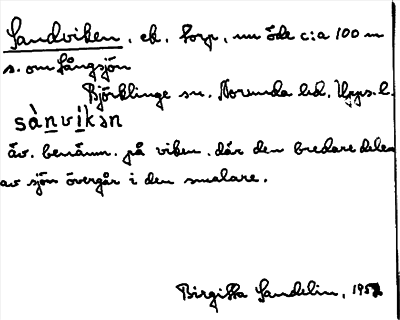 Sandviken, eb. torp, nu öde c:a 100 m
s. om Långsjön
Björklinge sn. Norunda hd. Upps. l.
sànvikən
äv. benämn. på viken, där den bredare delen
av sjön övergår i den smalare.
Birgitta Sandelin, 1952